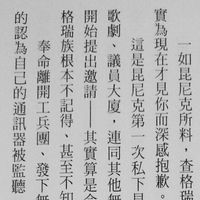 一如昆尼克所料，查格瑞
實為現在才見你而深感抱歉。
這是昆尼克第一次私下見
歌劇、議員大廈，連同其他無
開始提出邀請——其實算是命
格瑞族根本不記得、甚至不知
奉命離開工兵團，發下無
的認為自己的通訊器被監聽